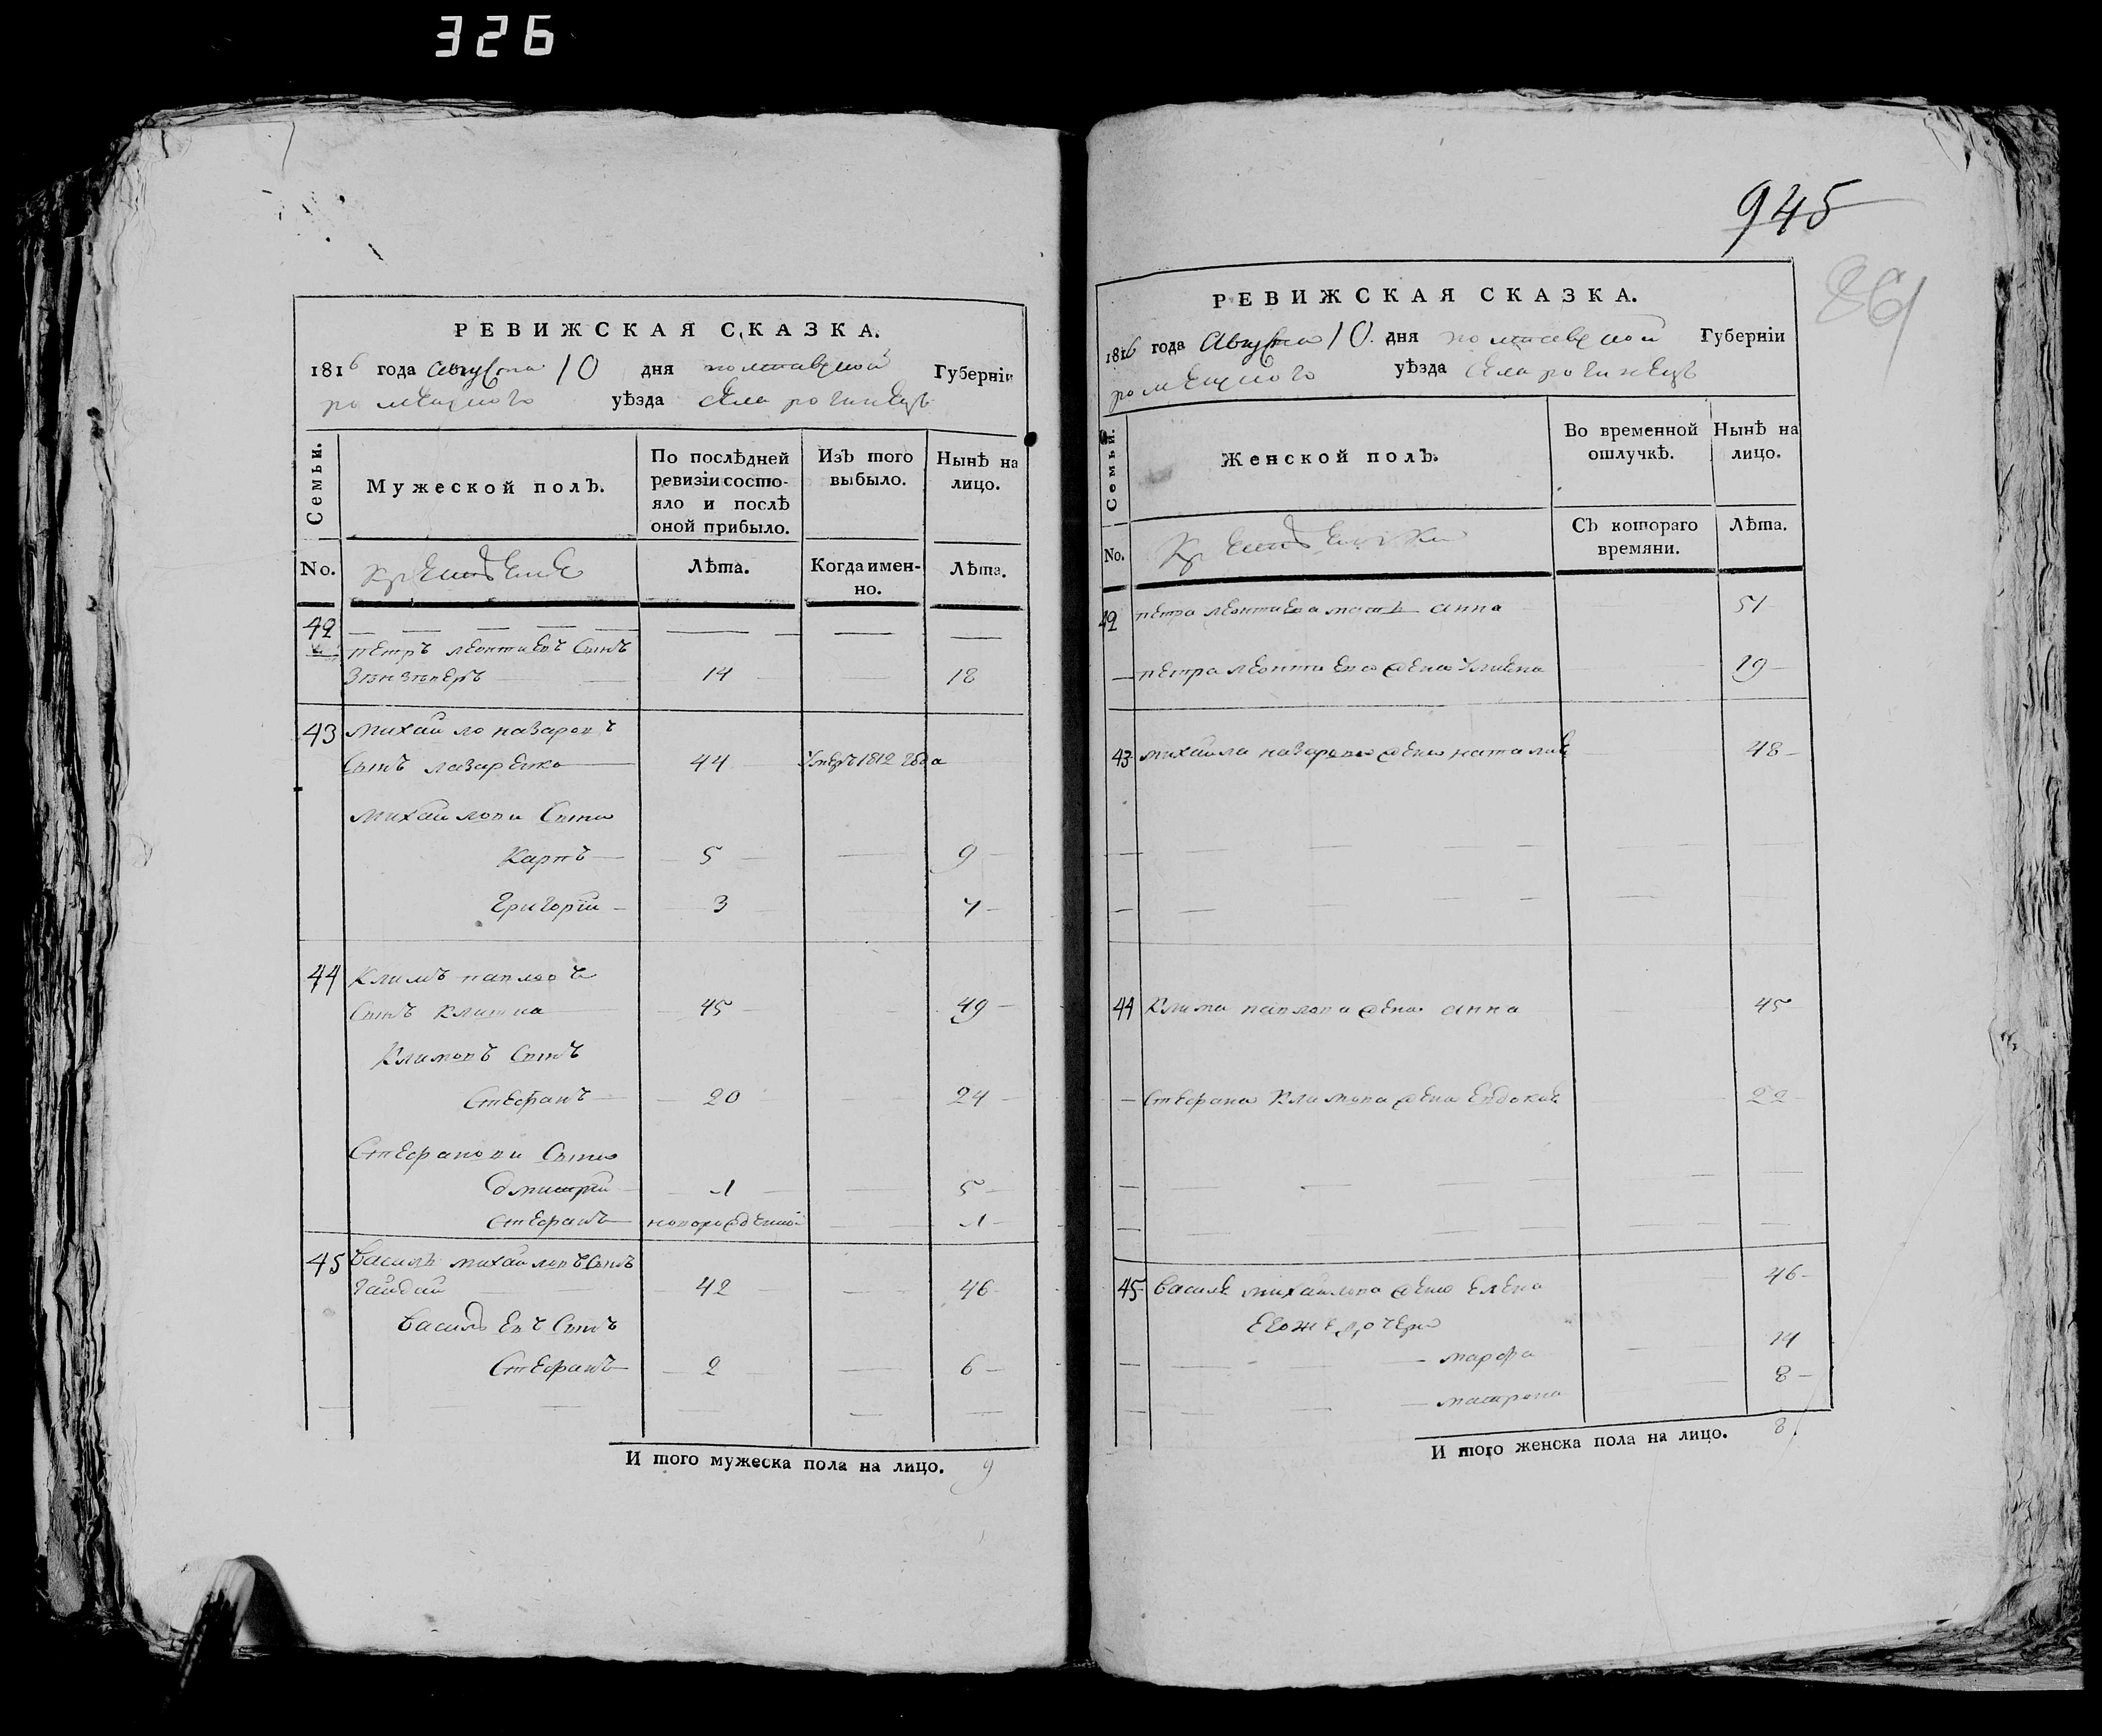 326
945
861
РЕВИЖСКАЯ СКАЗКА.
1816 года августа 10 дня полтавской Губерніи
роменского уѣзда села рогинецъ
Семьи.
Мужеской полъ.
По послѣдней ревизіи состояло и послѣ оной прибыло.
Изъ того выбыло.
Нынѣ на лицо.
No.
Лѣта.
Когда именно.
Лѣта.
42
петръ леонтиевъ сынъ
14 18
43 михайло назаровъ
сынъ лазаренко 44 умеръ 1812 года
михайлови сыны
Карпъ 5 9
григорій 3 7
44 Климъ павловъ
сынъ 45 49
Климовъ сынъ
стефанъ 20 24
Стефанови сыны
дмитрій 1 5
стефанъ новорожденной 1
45 василь михайловъ сынъ
гайдай 42 46
васильевъ сынъ
Стефанъ 2 6
И того мужеска пола на лицо. 9
РЕВИЖСКАЯ СКАЗКА.
1816 года августа 10 дня полтавской Губерніи
роменского уѣзда села рогинецъ
Семьи.
Женской полъ.
Во временной отлучкѣ.
Нынѣ на лицо.
No.
Съ котораго времяни.
Лѣта.
42 петра леонтиева мать анна 51
петра леонтиева жена улияна 19
43 михайла назарова жена наталия 48
44 Клима павлова жена анна 45
стефана Климова жена евдокия 22
45 василя михайлова жена елена 46
его же дочери
марфа 14
матрона 8
И того женска пола на лицо. 8